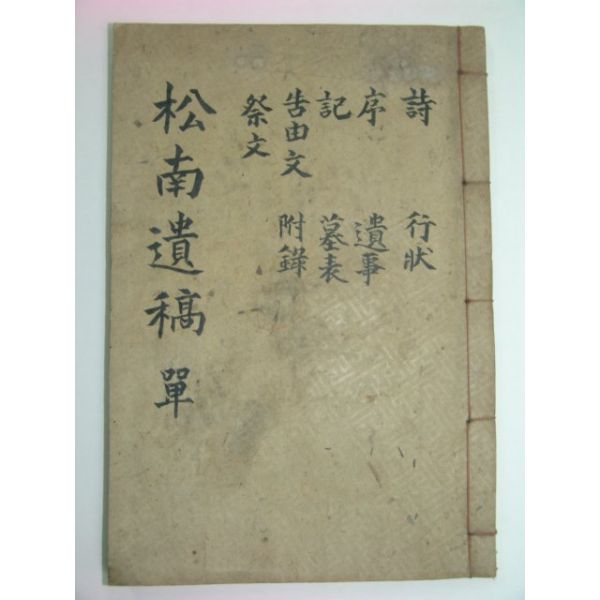 詩 行狀
序 遺事
記 墓表
告由文 附錄
祭文
松南遺稿 單